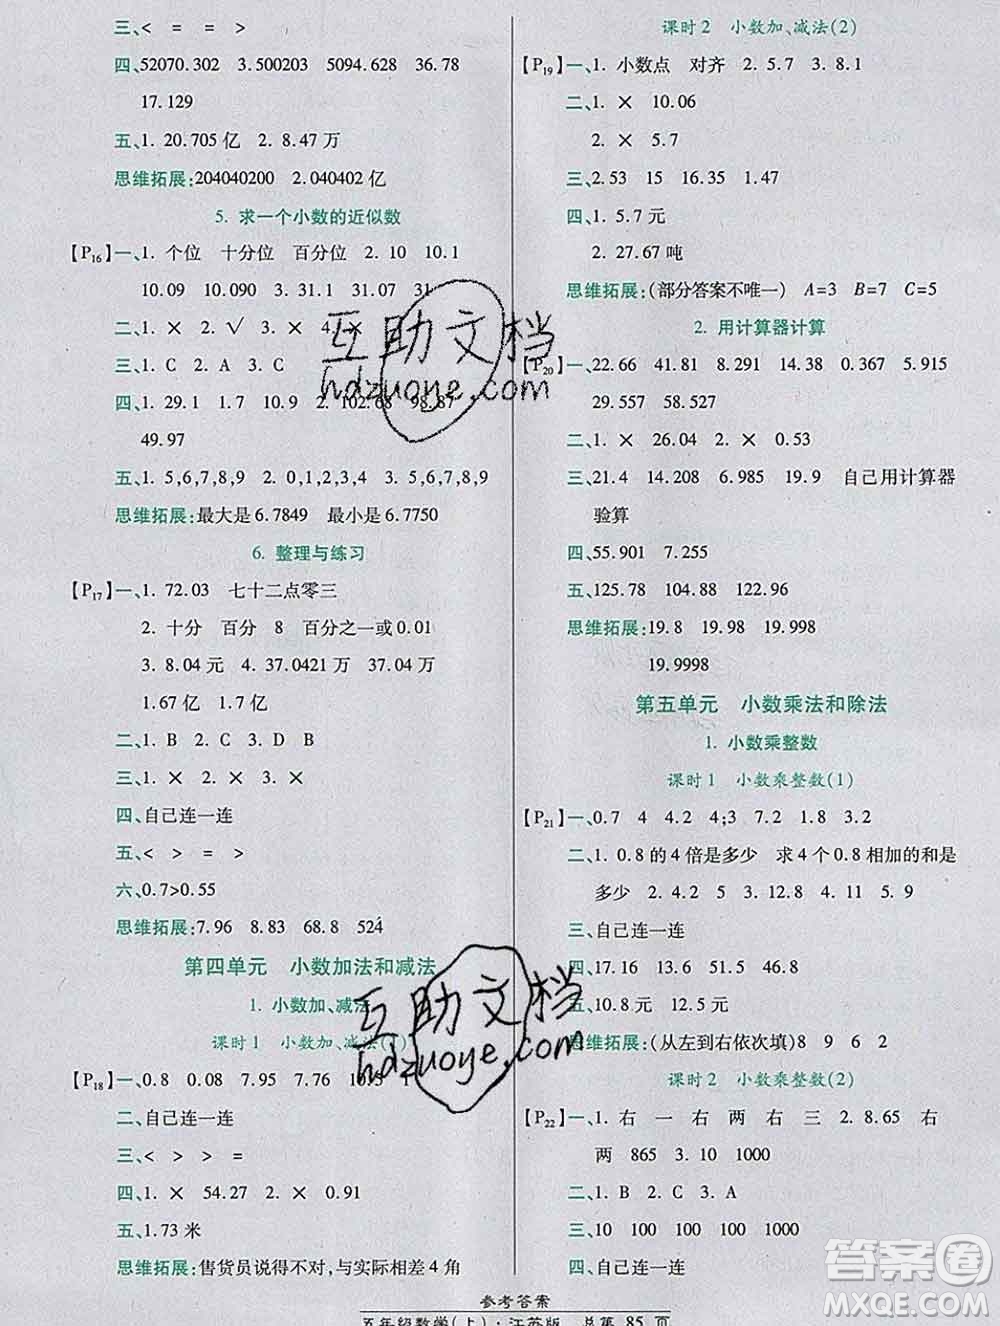 三、<　=　=　>
四、52070.302　3.500203　5094.628　36.78
17.129
五、1. 20.705亿　2. 8.47万
思维拓展:204040200　2.040402亿
5. 求一个小数的近似数
【P16】一、1. 个位　十分位　百分位　2. 10　10.1
10.09　10.090　3. 31.1　31.07　31
二、1. ×　2. √　3. ×　4. ×
三、1. C　2. A　3. C
四、1. 29.1　1.7　10.9　2. 102.68　98.87
49.97
五、1. 5,6,7,8,9　2. 1,2,3,4,5,6,7,8,9
思维拓展:最大是6.7849　最小是6.7750
6. 整理与练习
【P17】一、1. 72.03　七十二点零三
2. 十分　百分　8　百分之一或0.01
3. 8.04元　4. 37.0421万　37.04万
1.67亿　2.00亿
二、1. B　2. C　3. D　4. B
三、1. ×　2. ×　3. ×　4. ×
四、自己连一连
五、<　>　=　>
六、0.7>0.55
思维拓展:7.96　8.83　68.8　524
第四单元　小数加法和减法
1. 小数加、减法
课时1　小数加、减法(1)
【P18】一、0.8　0.08　7.95　7.76
二、自己连一连
三、<　>　>　=
四、1. ×　54.27　2. ×　0.91
五、1.73米
思维拓展:售货员说得不对,与实际相差4角
课时2　小数加、减法(2)
【P19】一、1. 小数点　对齐　2. 5.7　3. 8.1
二、1. ×　10.06
2. ×　5.7
三、2.53　15　15.375　1.47
四、1. 5.7元
2. 27.67吨
思维拓展:(部分答案不唯一)　A=3　B=7　C=5
2. 用计算器计算
【P20】一、22.66　41.81　8.291　14.38　0.367　5.915
29.557　58.527
二、1. ×　26.04　2. ×　0.53
三、21.4　14.208　6.985　19.9　自己用计算器
验算
四、55.901　7.255
五、125.78　104.88　110.88
思维拓展:19.8　19.98　19.998
19.9998
第五单元　小数乘法和除法
1. 小数乘整数
课时1　小数乘整数(1)
【P21】一、0.7　4　4.2　4;3　7.2　1.8　3.2
二、1. 0.8的4倍是多少　求4个0.8相加的和是
多少　2. 4.2　5　3. 2.1　4. 11　5. 9
三、自己连一连
四、17.16　58.5　79.5　12.6
五、10.8元　12.5元
思维拓展:(从左到右依次填)8　9　6　2
课时2　小数乘整数(2)
【P22】一、1. 右　一　右　两　右　三　2. 8.65　右
两　865　3. 10　100　1000
二、1. B　2. C　3. A
三、10　100　100　1000
四、自己连一连
参考答案
五年级数学(上)·江苏版　总第85页
互助文档
hdzuoye.com
互助文档
hdzuoye.com
答案圈
MXQE.COM